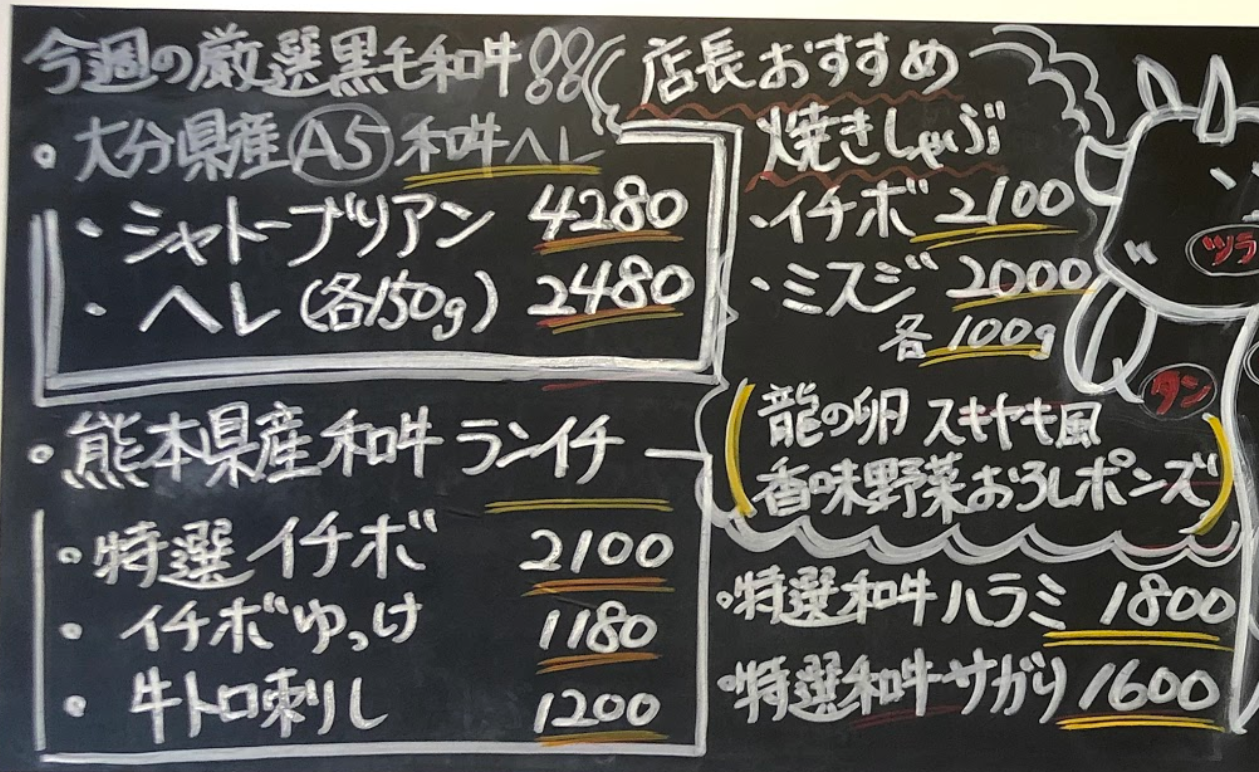 今週の厳選黒毛和牛!!
・大分県産 A5 和牛ヘレ
・シャトーブリアン 4280
・ヘレ(各150g) 2480
・熊本県産和牛 ランイチ
・特選イチボ 2100
・イチボゆっけ 1180
・牛トロ刺し 1200
店長おすすめ
焼きしゃぶ
・イチボ 2100
・ミスジ 2000
各100g
(龍の卵 スキヤキ風
香味野菜おろしポンズ)
・特選和牛ハラミ 1800
・特選和牛サガリ 1600
ツラ
タン